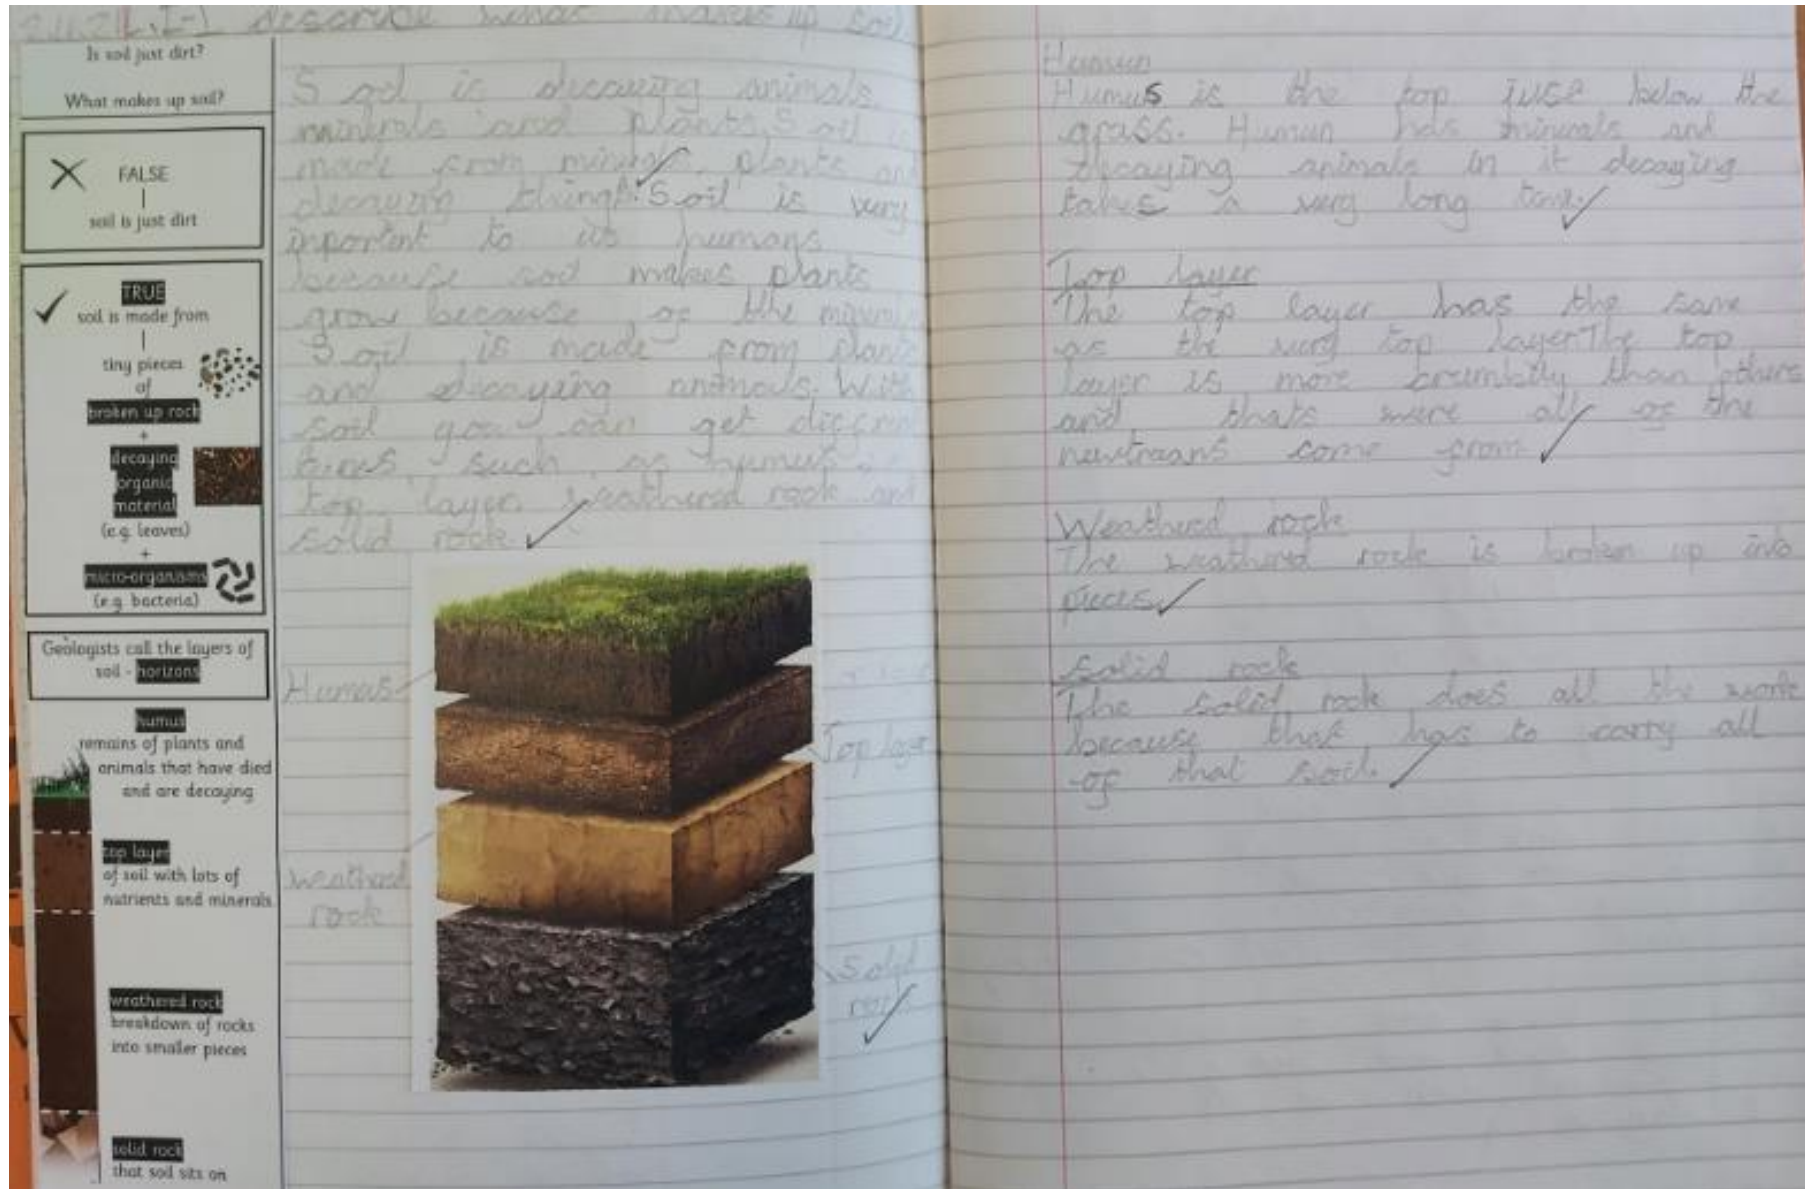 L.I-I describe what makes up soil
Is soil just dirt?
What makes up soil?
FALSE
soil is just dirt
TRUE
soil is made from
tiny pieces
of
broken up rock
+
decaying
organic
material
(e.g. leaves)
+
micro-organisms
(e.g. bacteria)
Geologists call the layers of
soil - horizons
humus
remains of plants and
animals that have died
and are decaying
top layer
of soil with lots of
nutrients and minerals
weathered rock
breakdown of rocks
into smaller pieces
solid rock
that soil sits on
Soil is decaying animals
minerals and plants. Soil is
made from minerals, plants and
decaying things. Soil is very
inportent to us humans
because soil makes plants
grow because of the
Soil is made from plants
and decaying animals. With
soil you can get
such as humus
top layer weathered rock and
solid rock.
Humas
Top layer
weatherd
rock
Solid
rock
Humun
Humus is the top juse below the
grass. Human has minerals and
decaying animals in it decaying
takes a very long time.
Top layer
The top layer has the same
as the very top layer The top
layer is more crumbily than others
and thats were all of the
newtreans come from
Weatherd rock
The weatherd rock is broken up into
pieces
Solid rock
The solid rock does all the work
because that has to carry all
of that soil.